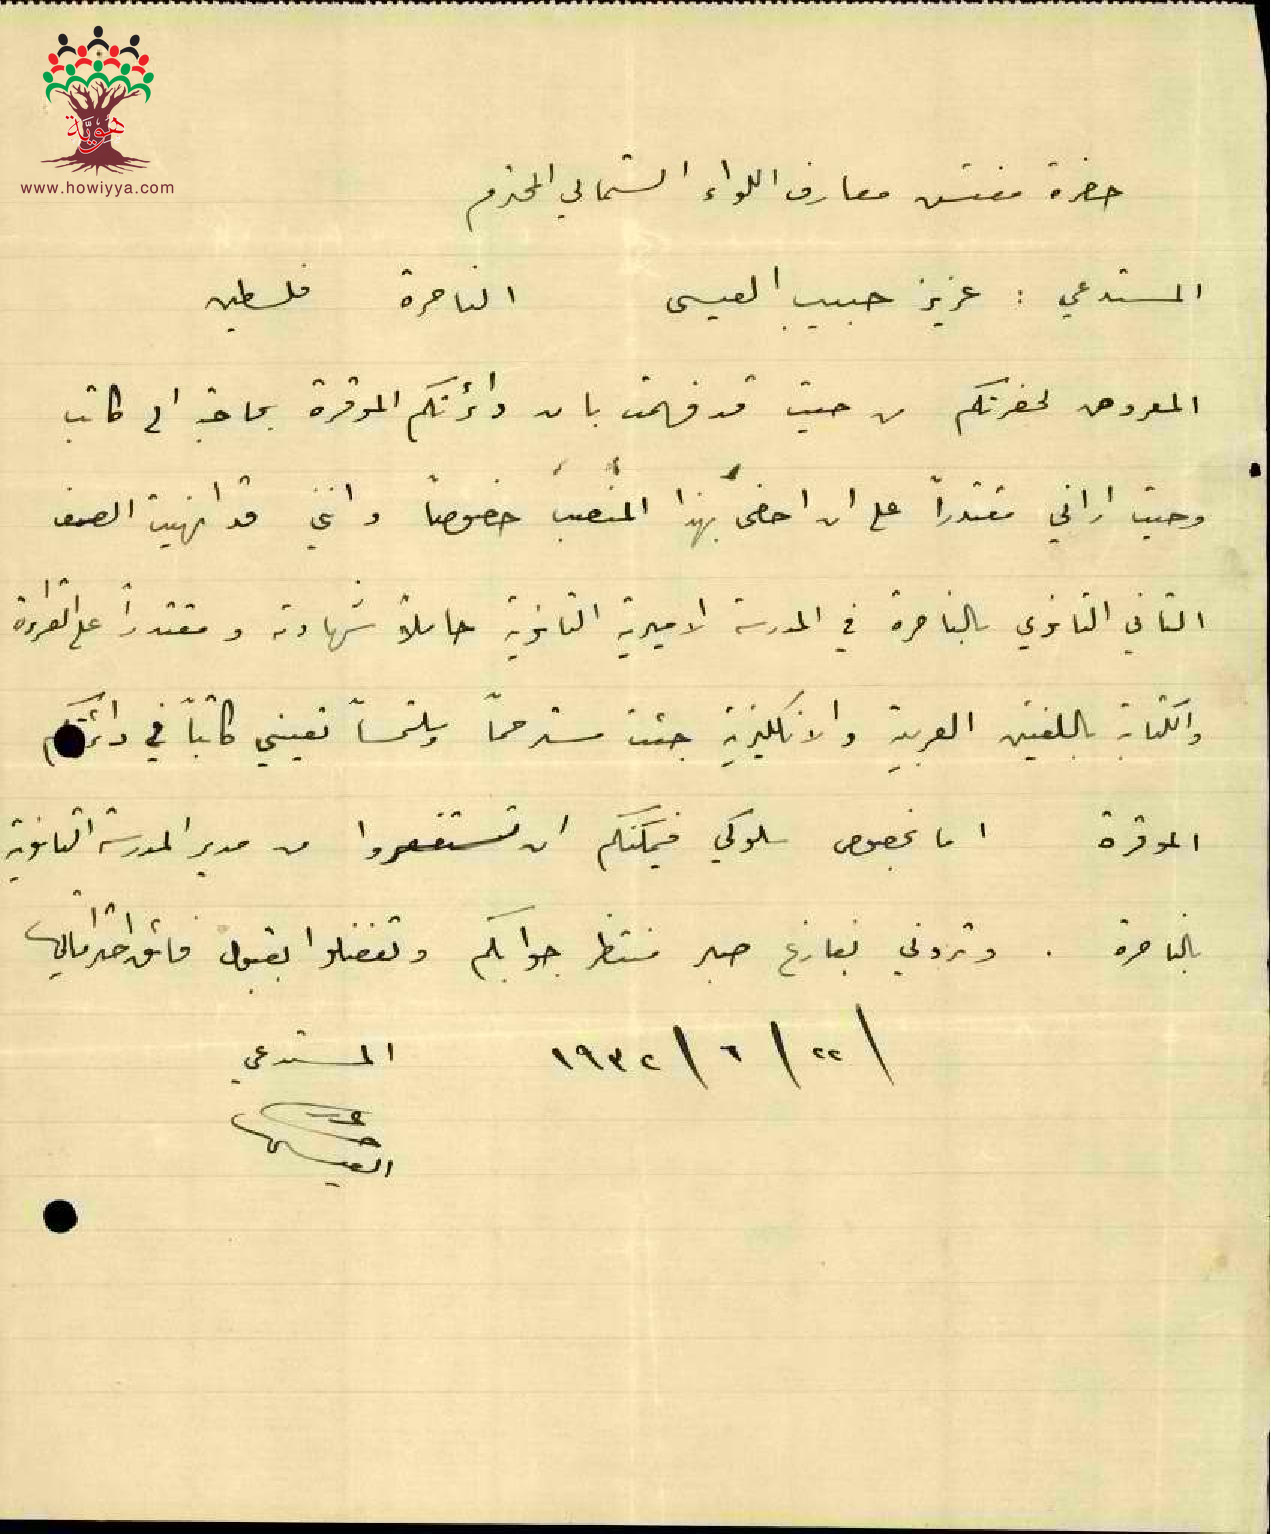 هوية
www.howiyya.com
حضرة مفتش معارف اللواء الشمالي المحترم
المستدعي : عزيز حبيب العيسى الناصرة فلسطين
المعروض لحضرتكم من حيث قد فهمت بان دائرتكم الموقرة بحاجة الى كاتب
وحيث اراني مقتدراً على ان احضى بهذا المنصب خصوصاً وانني قد انهيت الصف
الثاني الثانوي بالناصرة في المدرسة الاميرية الثانوية حاملاً شهادته ومقتدراً على القراءة
والكتابة باللغتين العربية والانكليزية جئت مسترحماً وملتمساً تعييني كاتباً في دائرتكم
الموقرة اما بخصوص سلوكي فيمكنكم ان تستفسروا من مدير المدرسة الثانوية
بالناصرة . وتروني بفارغ صبر منتظر جوابكم وتفضلوا بقبول فائق احتراماتي
٢٢ / ٦ / ١٩٣٢ المستدعي
العيسى